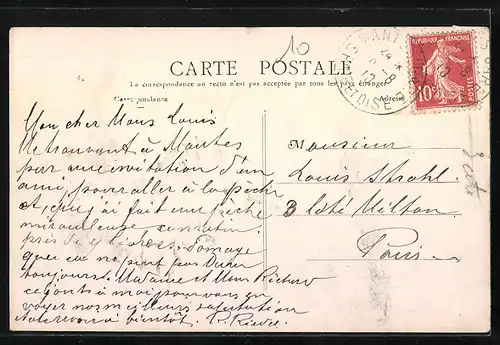 10
CARTE POSTALE
La correspondance au recto n'est pas acceptée par tous les pays étrangers
Correspondance
Adresse
REPUBLIQUE FRANÇAISE
10c
POSTES
Mon cher Mons Louis
Me trouvant à Mantes
par une invitation d'un
ami, pour aller à la pèche
et, que j'ai fait une pèche
miraculeuse ce matin
près de livres, domage
que ca ne peut pas Durer
toujours. Madame et Mons Richard
ce joints à moi pour vous en
voyer nos meilleurs salutation
et à bientôt.
Monsieur
Louis Strohl.
3 Cité Milton
Paris